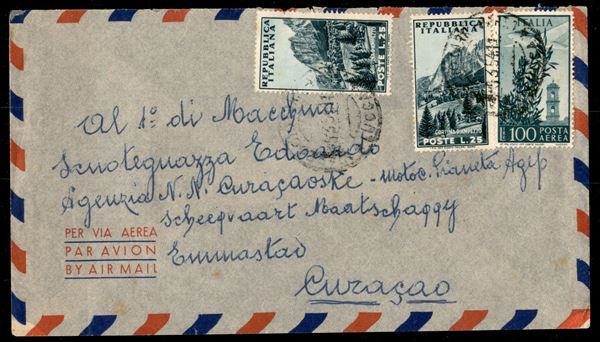 REPUBBLICA
ITALIANA
POSTE L. 25
REPUBBLICA
ITALIANA
CORTINA D'AMPEZZO
POSTE L. 25
ITALIA
L. 100 POSTA
AEREA
Al 1° di Macchina
Edoardo
Agenzia N.N. Curaçaoske - motoc. Pianeta Agip
Scheepvaart Maatschappy
Emmastad
Curaçao
PER VIA AEREA
PAR AVION
BY AIR MAIL